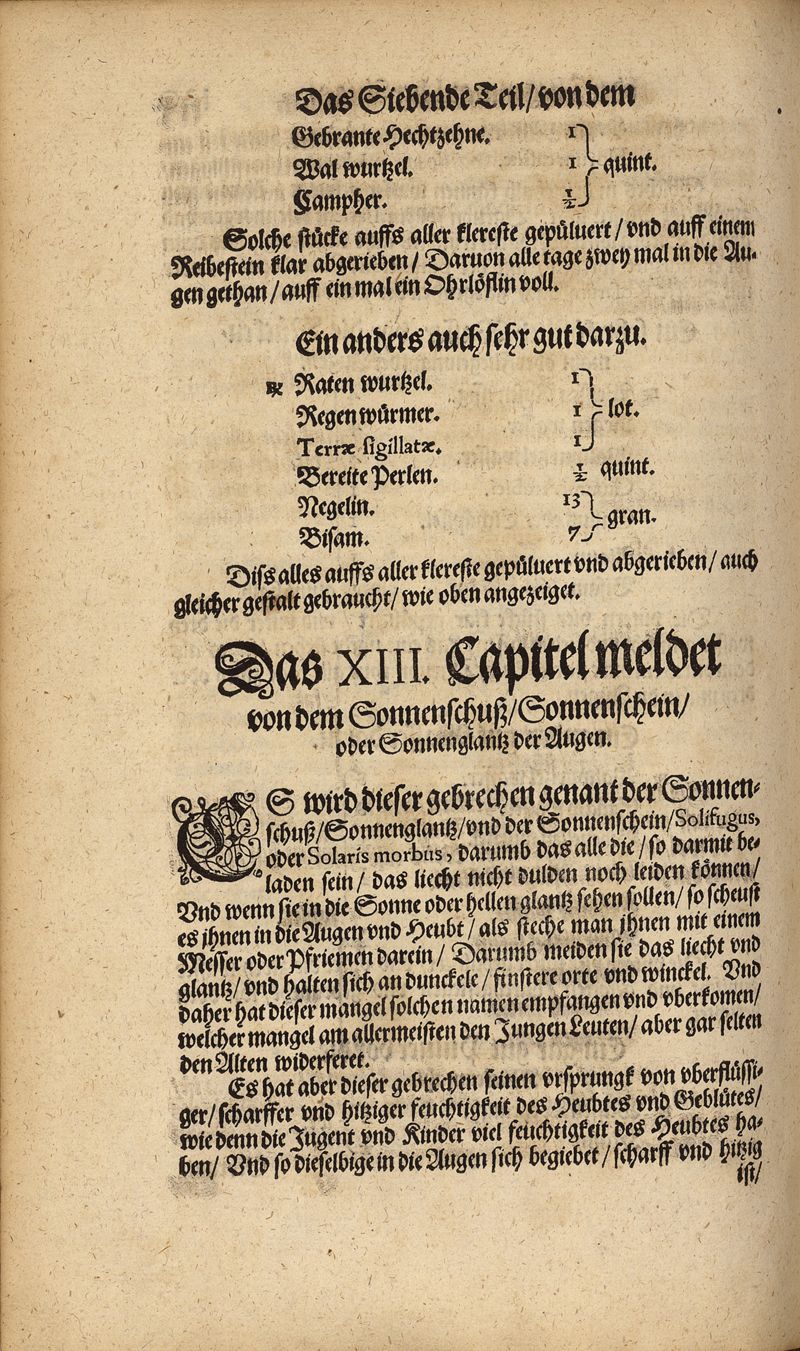 Das Siebende Teil/von dem
Gebrante Hechtzehne. 1
Wal wurtzel. 1 quint.
Campher. ½
Solche stücke auffs aller klereste gepůluert/vnd auff einem
Reibestein klar abgerieben/ Daruon alle tage zwey mal in die Au-
gen gethan/auff ein mal ein Ohrlöflin voll.
Ein anders auch sehr gut darzu.
℞ Raten wurtzel. 1
Regenwůrmer. 1 lot.
Terræ sigillatæ. 1
Bereite Perlen. ½ quint.
Negelin. 13
Bisam. 7 gran.
Diss alles auffs aller klereste gepůluert vnd abgerieben/ auch
gleicher gestalt gebraucht/ wie oben angezeiget.
Das XIII. Capitel meldet
von dem Sonnenschuß/Sonnenschein/
oder Sonnenglantz der Augen.
ES wird dieser gebrechen genant der Sonnen-
schuß/Sonnenglantz/vnd der Sonnenschein/Solifugus,
oder Solaris morbus, darumb das alle die/so darmit be-
laden sein/ das liecht nicht dulden noch leiden können/
Vnd wenn sie in die Sonne oder hellen glantz sehen sollen/ so scheust
es ihnen in die Augen vnd Heubt/ als steche man jhnen mit einem
Messer oder Pfriemen darein/ Darumb meiden sie das liecht vnd
glantz/ vnd halten sich an dunckele/ finstere orte vnd winckel. Vnd
daher hat dieser mangel solchen namen empfangen vnd vberkomen/
welcher mangel am allermeisten den Jungen Leuten/ aber gar selten
den Alten widerferet.
Es hat aber dieser gebrechen seinen vrsprungk von vberflüssi-
ger/scharffer vnd hitziger feuchtigkeit des Heubtes vnd Geblůtes/
wie denn die Jugent vnd Kinder viel feuchtigkeit des Heubtes ha-
ben/ Vnd so dieselbige in die Augen sich begiebet/ scharff vnd hitzig
ist/